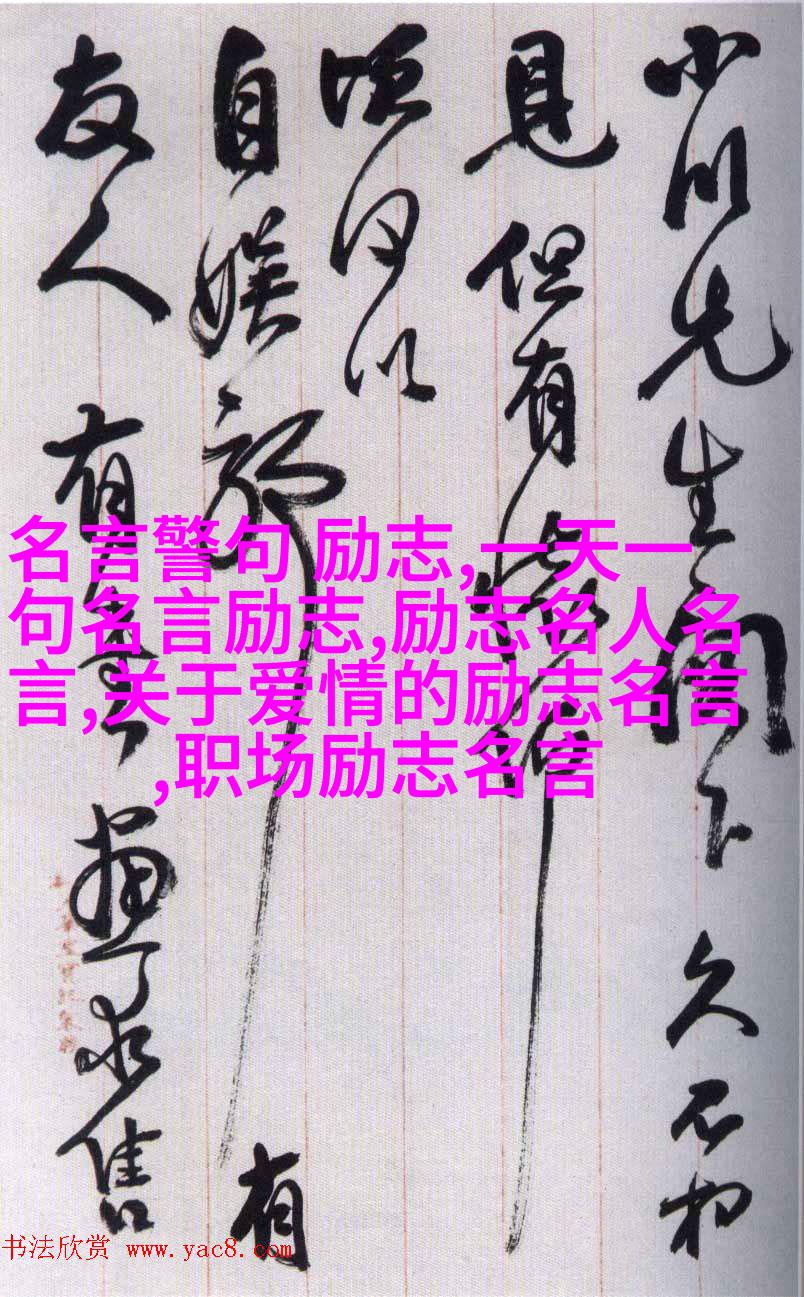 小川先生閣下 久不相
見 但有懷仰
何以
自娱耶 有
友人 有書畫求售
名言警句 励志,一天一
句名言励志,励志名人名
言,关于爱情的励志名言
,职场励志名言
书法欣赏 www.yac8.com